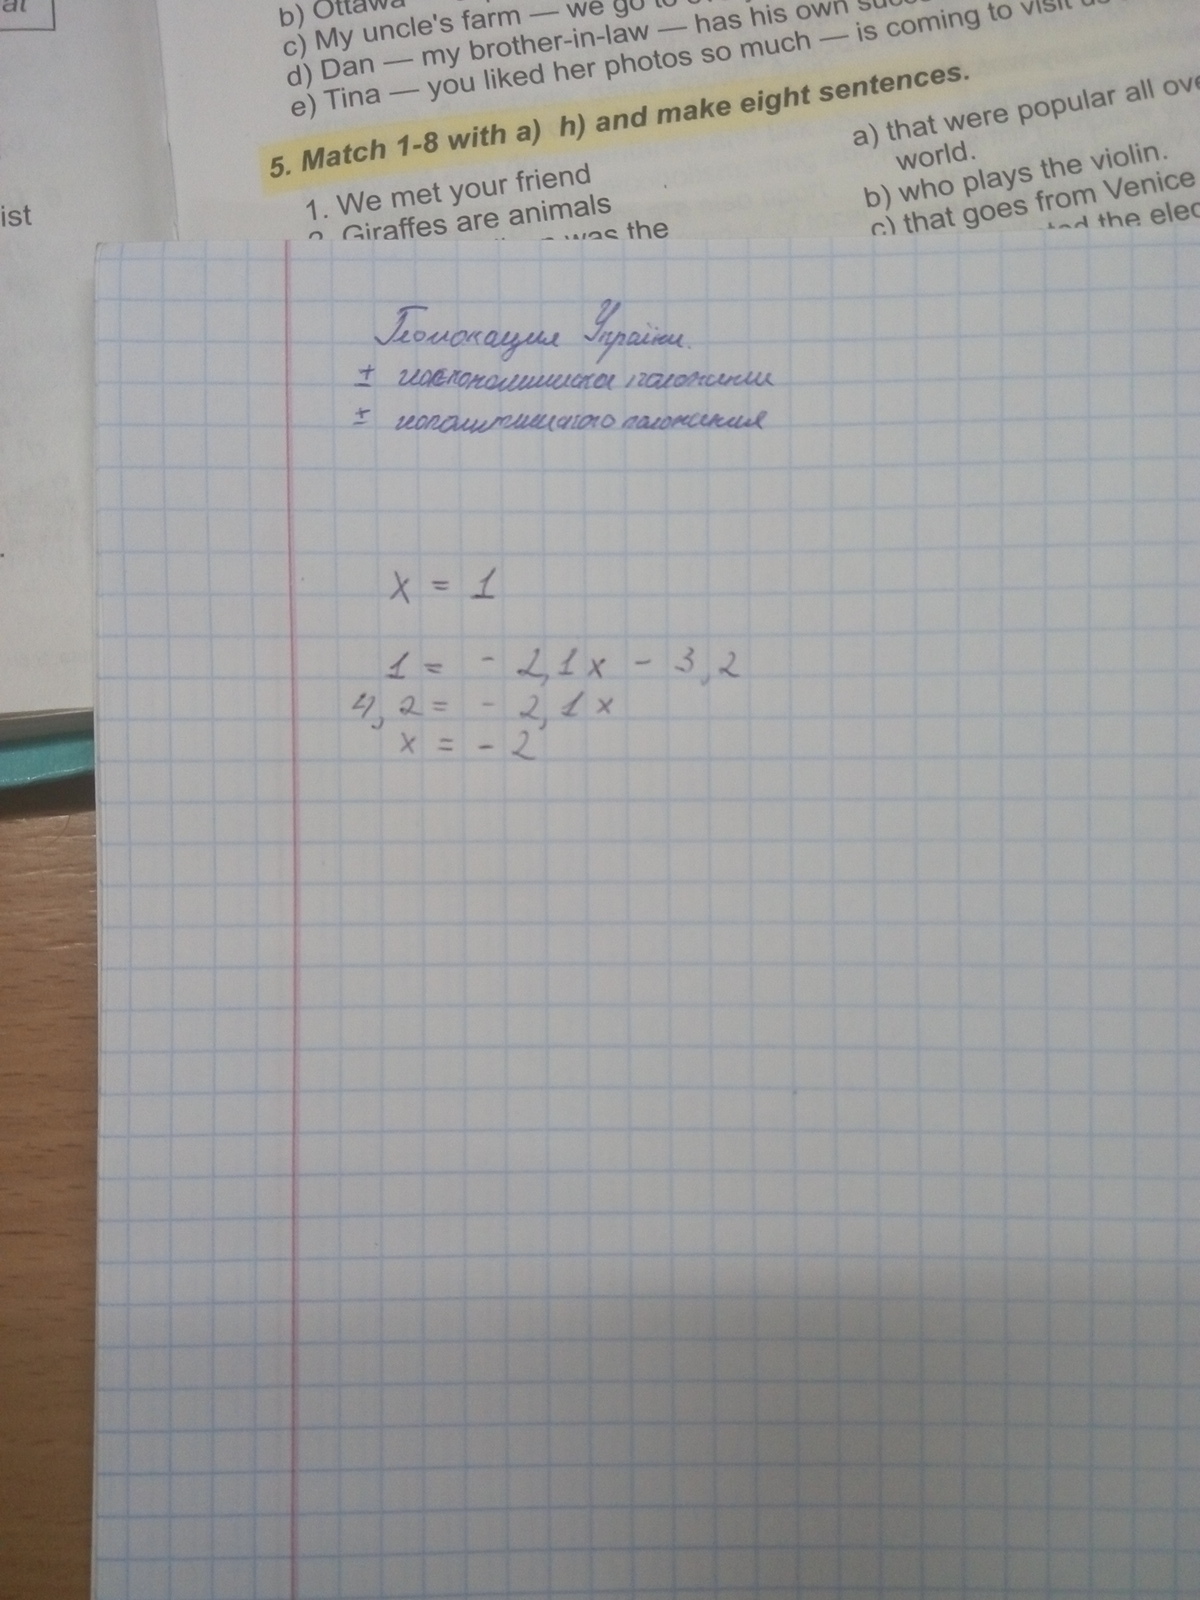 al
ist
b) Ottawa
c) My uncle's farm — we go to
d) Dan — my brother-in-law — has his own
e) Tina — you liked her photos so much — is coming to visit us
5. Match 1-8 with a) h) and make eight sentences.
1. We met your friend
2. Giraffes are animals
was the
a) that were popular all over
world.
b) who plays the violin.
c) that goes from Venice
the elec
Геолокация України.
±
± положения
x = 1
1 = - 2,1x - 3,2
4,2 = - 2,1x
x = - 2